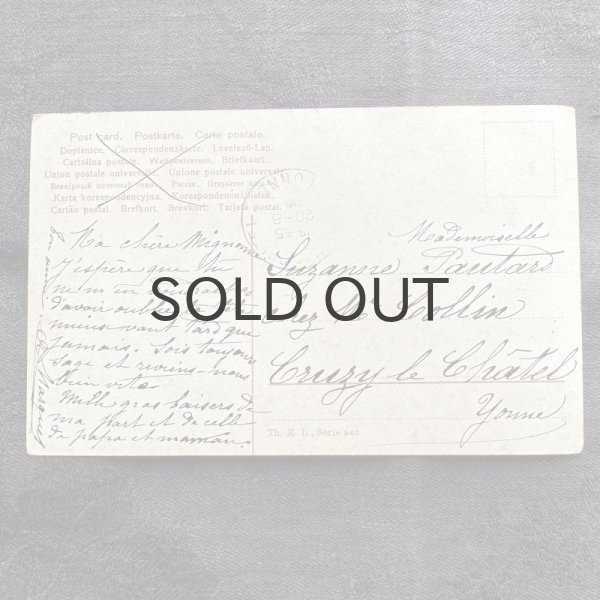 Post card. Postkarte. Carte postale.
Dopisnice. Correspondenzkarte. Levelező-Lap.
Cartolina postale. Weltpostverein. Briefkaart.
Union postale universelle. Unione postale universale.
Karta korespondencyjna. Korespondenční lístek.
Cartão postal. Brefkort. Brevkort. Tarjeta postal.
Ma chère Mignonne
J'espère que tu
ne m'en
d'avoir
mieux vaut tard que
jamais. Sois toujours
sage et reviens-nous
bien vite.
Mille gros baisers de
ma part et de celle
de papa et maman.
Mademoiselle
Suzanne Pautard
Chez Mr Rollin
Cruzy le Châtel
Yonne
Th. E. L., Serie 946
SOLD OUT